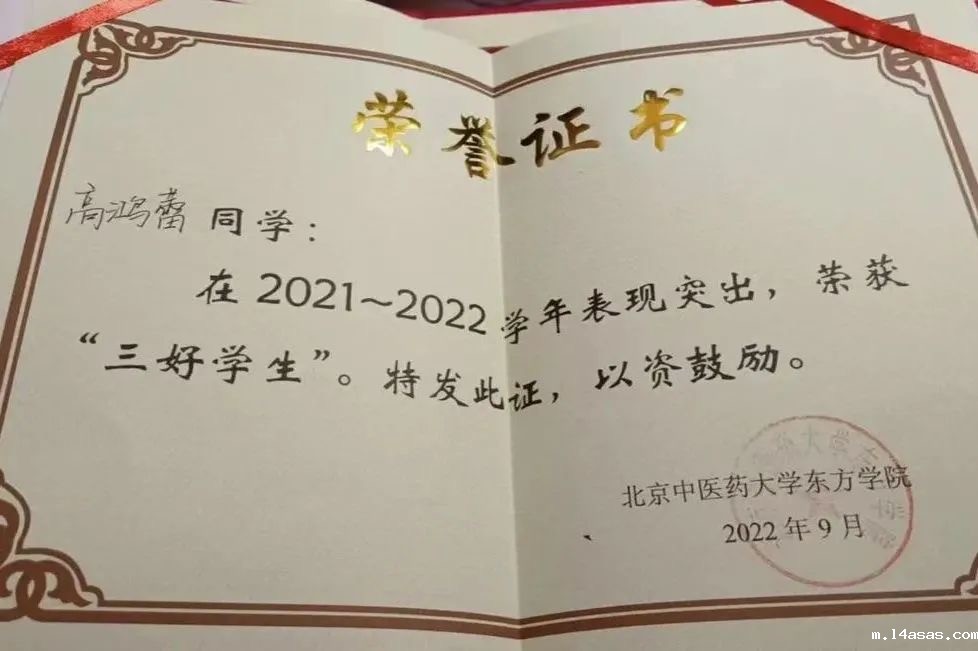 荣誉证书
高鸿蕾 同学：
在 2021～2022 学年表现突出，荣获
“三好学生”。特发此证，以资鼓励。
北京中医药大学东方学院
2022 年 9 月
m.14asas.com